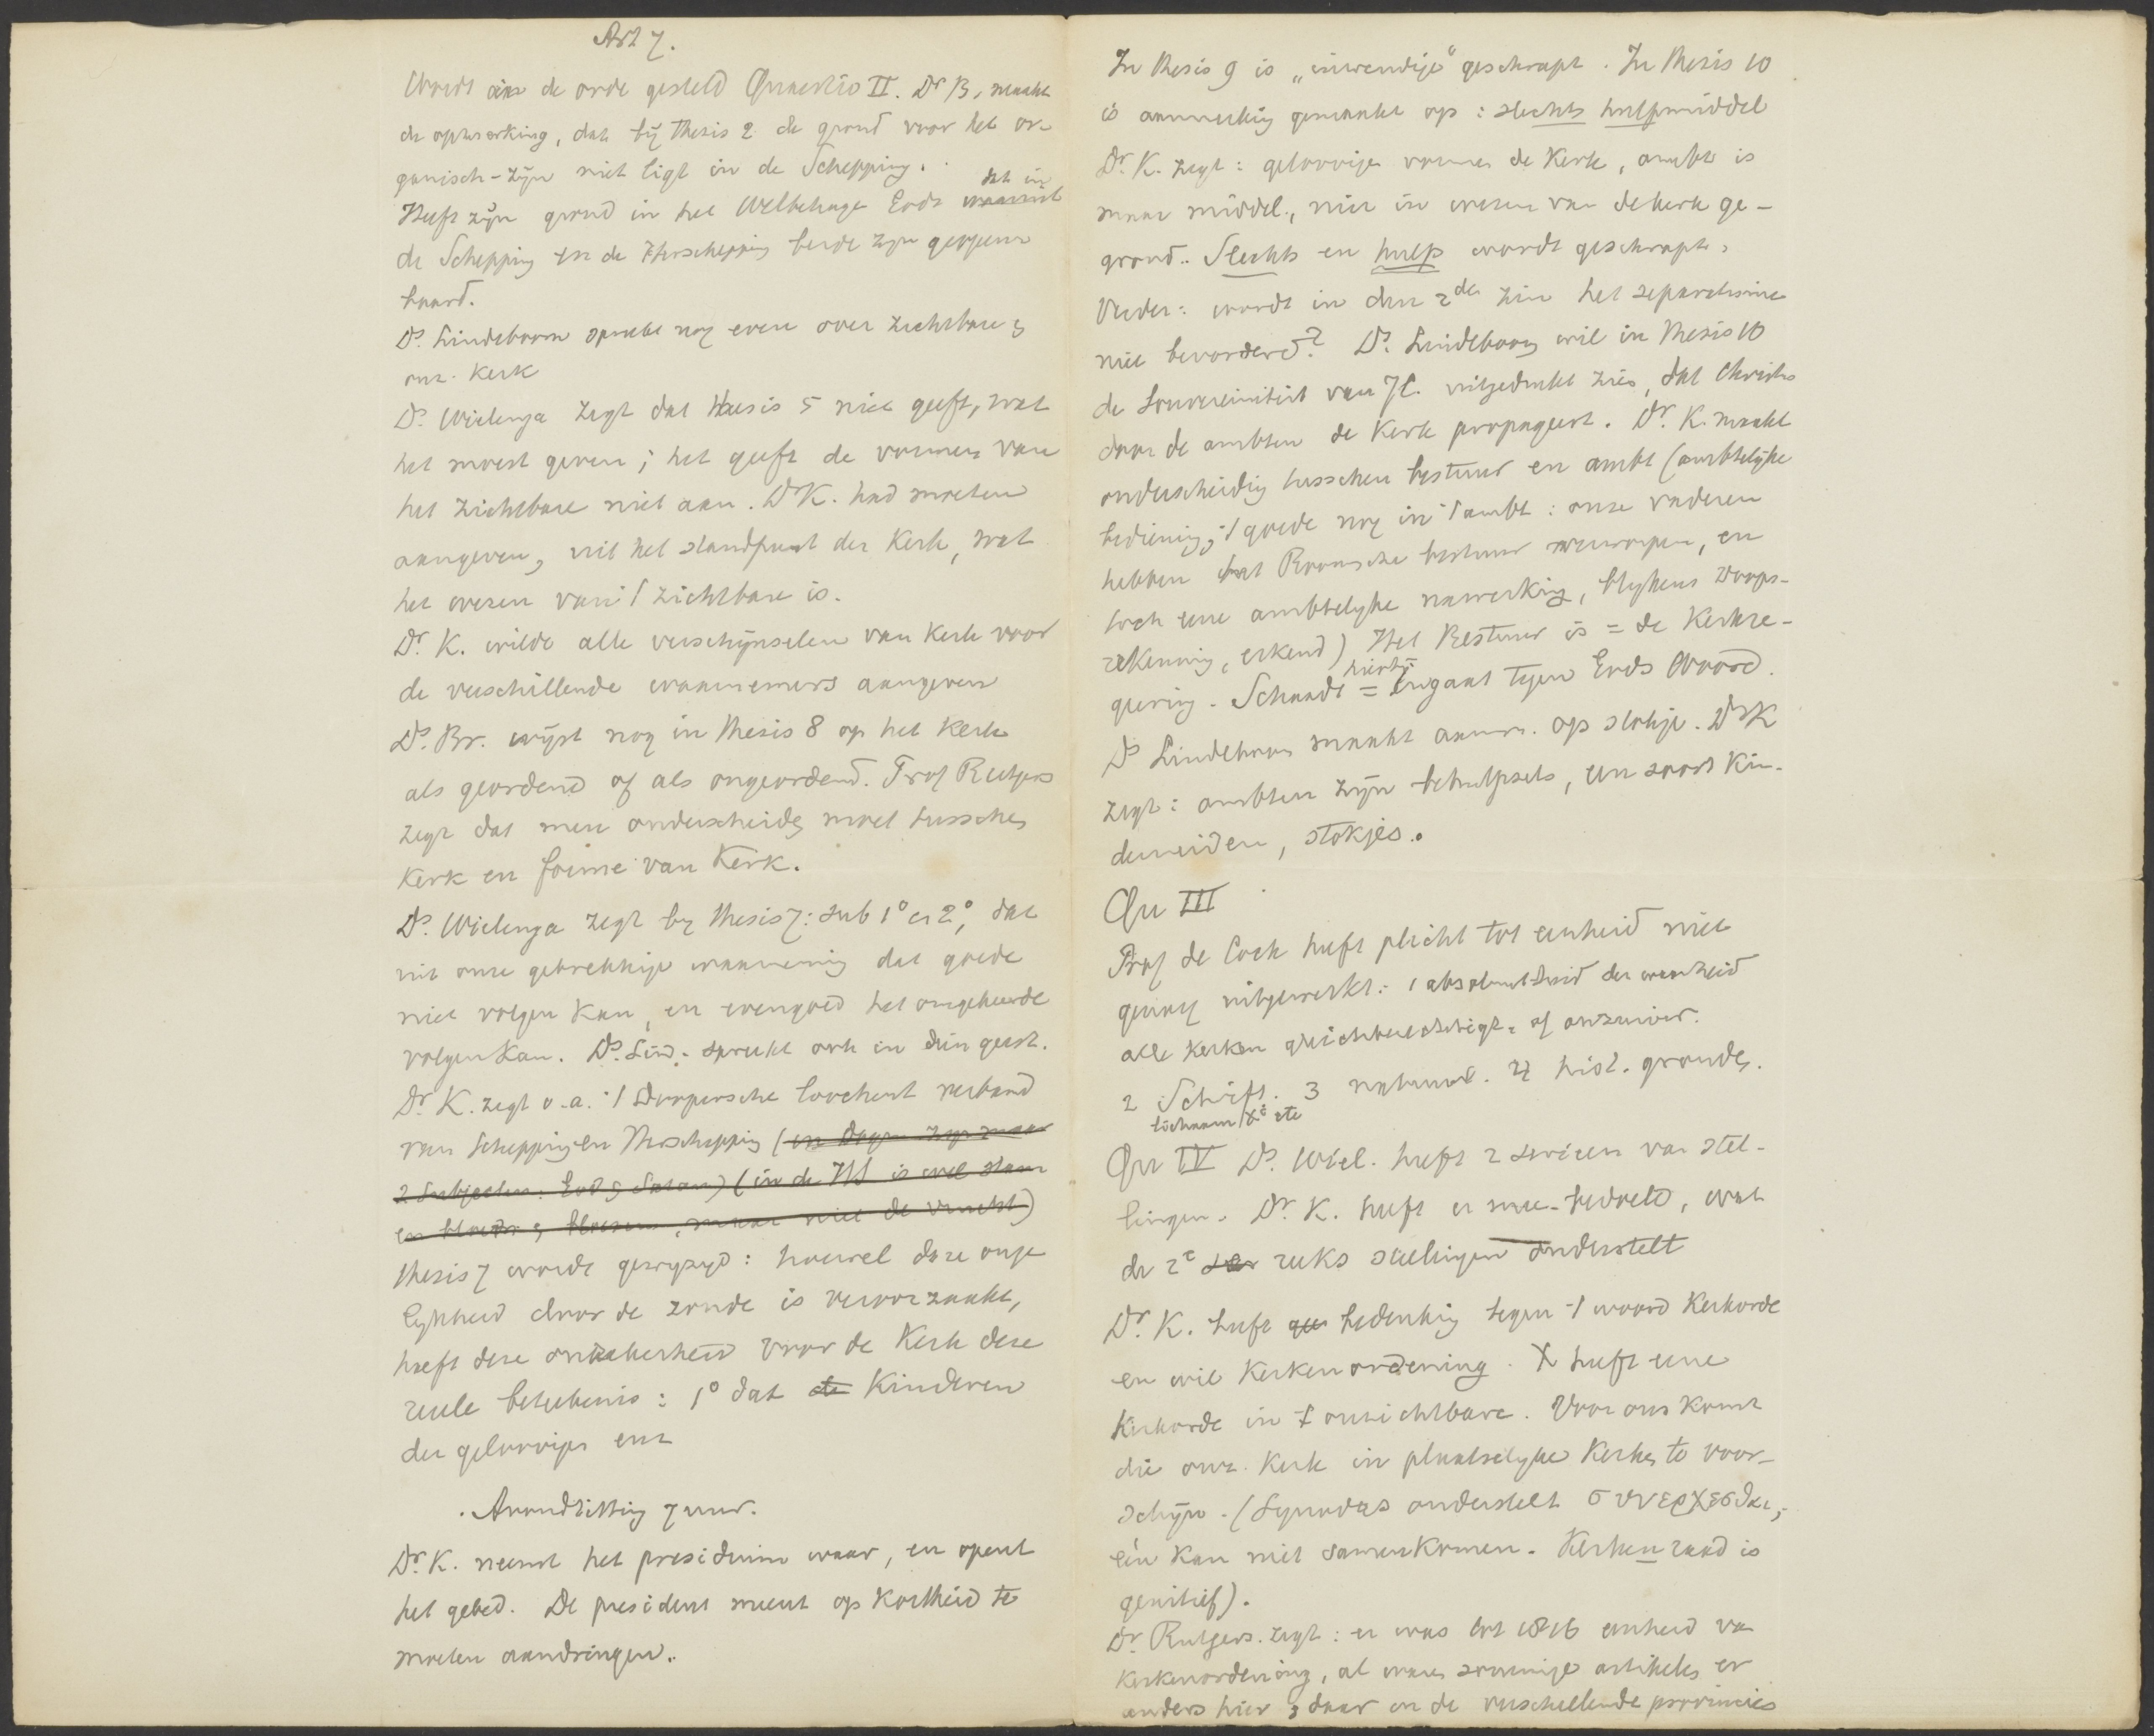 Art 7.
Wordt aan de orde gesteld Quaestio II. Dr B. maakt
de opmerking, dat bij thesis 2 de grond voor het or-
ganisch-zijn niet ligt in de Schepping.
Heeft zijn grond in het Welbehage Gods waaruit dat in
de Schepping en de Herschepping beide zijn geopen-
baard.
Ds. Lindeboom spreekt nog even over zichtbare &
onz. Kerk
Ds. Wielenga zegt dat thesis 5 niet geeft, wat
het moest geven; het geeft de vormen van
het zichtbare niet aan. Dr K. had moeten
aangeven, uit het standpunt der Kerk, wat
het wezen van 't zichtbare is.
Dr. K. wilde alle verschijnselen van Kerk voor
de verschillende waarnemers aangeven
Ds. Br. wijst nog in thesis 8 op het Kerk
als geordend of als ongeordend. Prof Rutgers
zegt dat men onderscheiden moet tusschen
Kerk en forme van Kerk.
Ds. Wielenga zegt bij thesis 7: sub 1° en 2°, dat
uit onze gebrekkige waarneming dat goede
niet volgen kan, en evengoed het ongekeerde
volgen kan. Ds. Lind. spreekt ook in dien geest.
Dr K. zegt o.a.: 't Doopersche loochent verband
van Schepping en Herschepping (en dogen zijn maar
2 Subjecten: God & Satan) (in de HS is wel stam
en bladr & bloesem, maar niet de vrucht)
thesis 7 wordt gewijzigd: hoewel deze onge
lijkheid door de zonde is veroorzaakt,
heeft deze onzekerheid voor de Kerk deze
reële beteekenis: 1° dat de Kinderen
der geloovigen enz
Avondzitting 7 uur.
Dr. K. neemt het presidium waar, en opent
het gebed. De president meent op Kortheid te
moeten aandringen.
In thesis 9 is „inwendige" geschrapt. In thesis 10
is aanmerking gemaakt op: slechts hulpmiddel
Dr. K. zegt: geloovigen vormen de Kerk, ambt is
maar middel, niet in wezen van de kerk ge-
grond. Slechts en hulp wordt geschrapt.
Verder: wordt in den 2den zin het separatisme
niet bevorderd? Ds. Lindeboom wil in thesis 10
de Souvereiniteit van J.C. uitgedrukt zien, dat Christus
door de ambten de Kerk propageert. Dr. K. maakt
onderscheiding tusschen bestuur en ambt (ambtelijke
bediening; 't goede nog in 't ambt: onze vaderen
hebben het Roomsche bestuur verworpen, en
toch eene ambtelijke nawerking, blijkens Doops-
erkenning, erkend) Het Bestuur is = de Kerkre-
geering. Schaadt = ingaat hierbij tegen Gods Woord.
Ds Lindeboom maakt aanm. op stokje. Dr K
zegt: ambten zijn behulpsels, een soort Kin-
dermeiden, stokjes.
Qu III
Prof de Cock heeft plicht tot eenheid niet
genoeg uitgewerkt: 1 absoluutheid der waarheid
alle Kerken gelijkberechtigt of onzuiver.
2 Schrift. 3 natuur. 4 hist. gronden.
lichaam X<sup>i</sup> etc
Qu IV Ds. Wiel. heeft 2 seriëen van stel-
lingen. Dr. K. heeft er mee bedoeld, wat
de 2e der reeks stellingen onderstelt
Dr. K. heeft gee bedenking tegen 't woord Kerkorde
en wil Kerkenordening. X heeft eene
Kerkorde in t onzichtbare. Voor ons komt
die onz. Kerk in plaatselijke Kerken te voor-
schijn. (Synodus onderstelt συνερχεσθαι,
één kan niet samenkomen. Kerkenraad is
genitief).
Dr. Rutgers zegt: er was tot 1816 eenheid van
Kerkenordening, al waren sommige artikelen er
anders hier & daar in de verschillende provincies